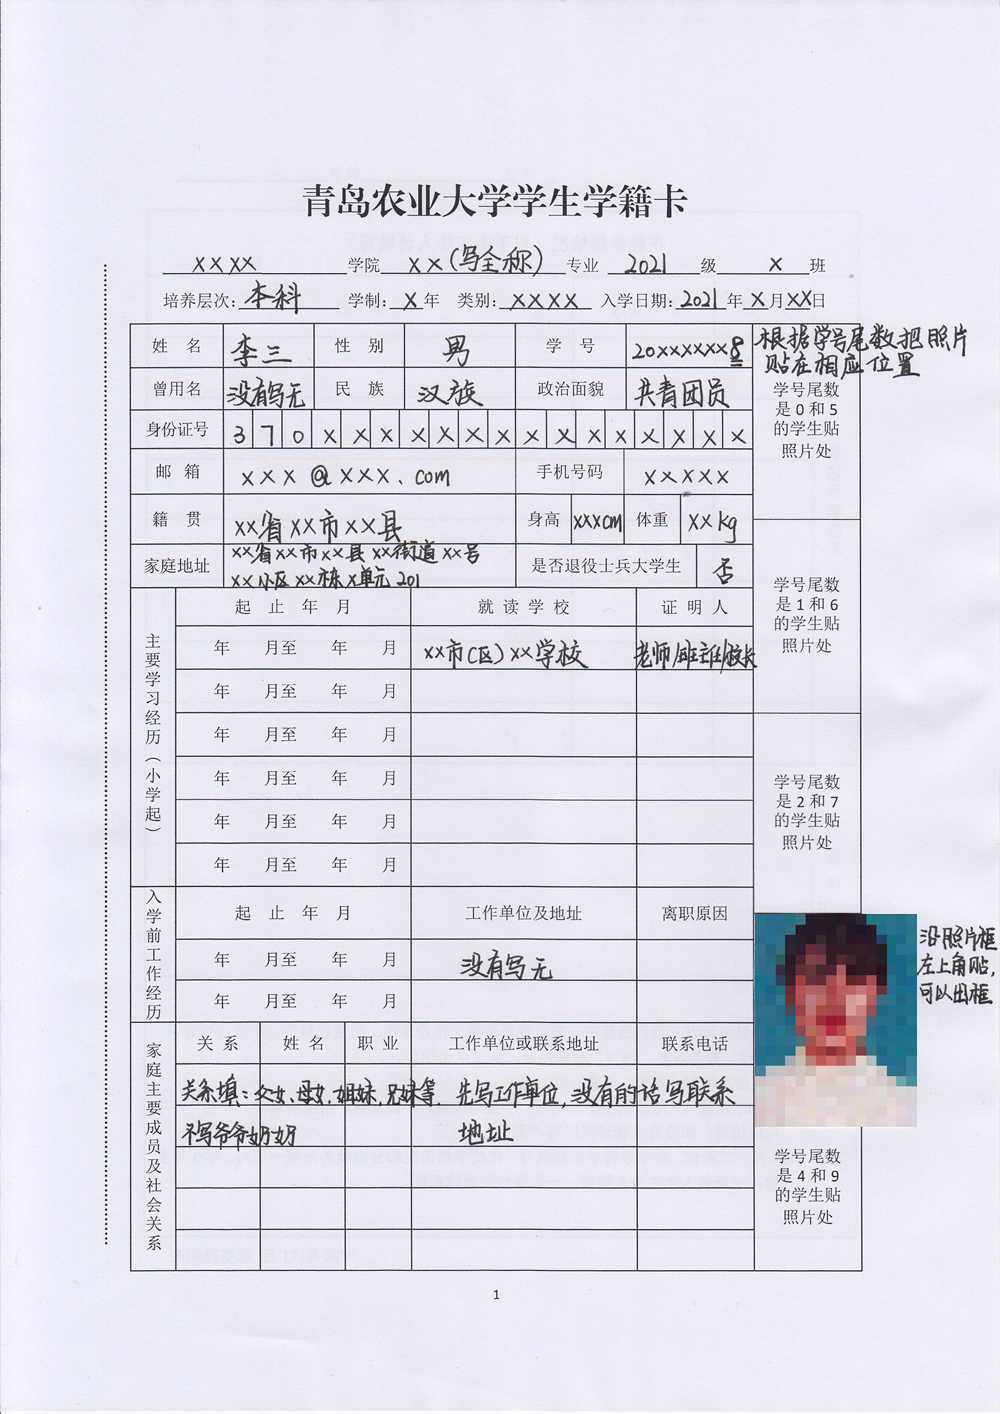 青岛农业大学学生学籍卡
XXXX 学院 XX(写全称) 专业 2021 级 X 班
培养层次: 本科 学制: X 年 类别: XXXX 入学日期: 2021 年 X 月 XX 日
姓 名 李三 性 别 男 学 号 20XXXXXXX8
根据学号尾数把照片
贴在相应位置
曾用名 没有写无 民 族 汉族 政治面貌 共青团员
学号尾数
是 0 和 5
的学生贴
照片处
身份证号 3 7 0 X X X X X X X X X X X X X X X
邮 箱 XXX@XXX.com 手机号码 XXXXX
籍 贯 XX省XX市XX县 身高 XXXcm 体重 XXkg
家庭地址 XX省XX市XX县XX街道XX号
XX小区XX栋X单元201
是否退役士兵大学生 否
学号尾数
是 1 和 6
的学生贴
照片处
主要学习经历（小学起）
起 止 年 月 就 读 学 校 证 明 人
年 月至 年 月 XX市(区)XX学校 老师/班主任/校长
年 月至 年 月
年 月至 年 月
年 月至 年 月
年 月至 年 月
年 月至 年 月
学号尾数
是 2 和 7
的学生贴
照片处
入学前工作经历
起 止 年 月 工作单位及地址 离职原因
年 月至 年 月 没有写无
年 月至 年 月
沿照片框
左上角贴,
可以出框
家庭主要成员及社会关系
关 系 姓 名 职 业 工作单位或联系地址 联系电话
关系填:父女、母女、姐妹、兄妹等. 先写工作单位,没有的话写联系
不写爷爷奶奶 地址
学号尾数
是 4 和 9
的学生贴
照片处
1